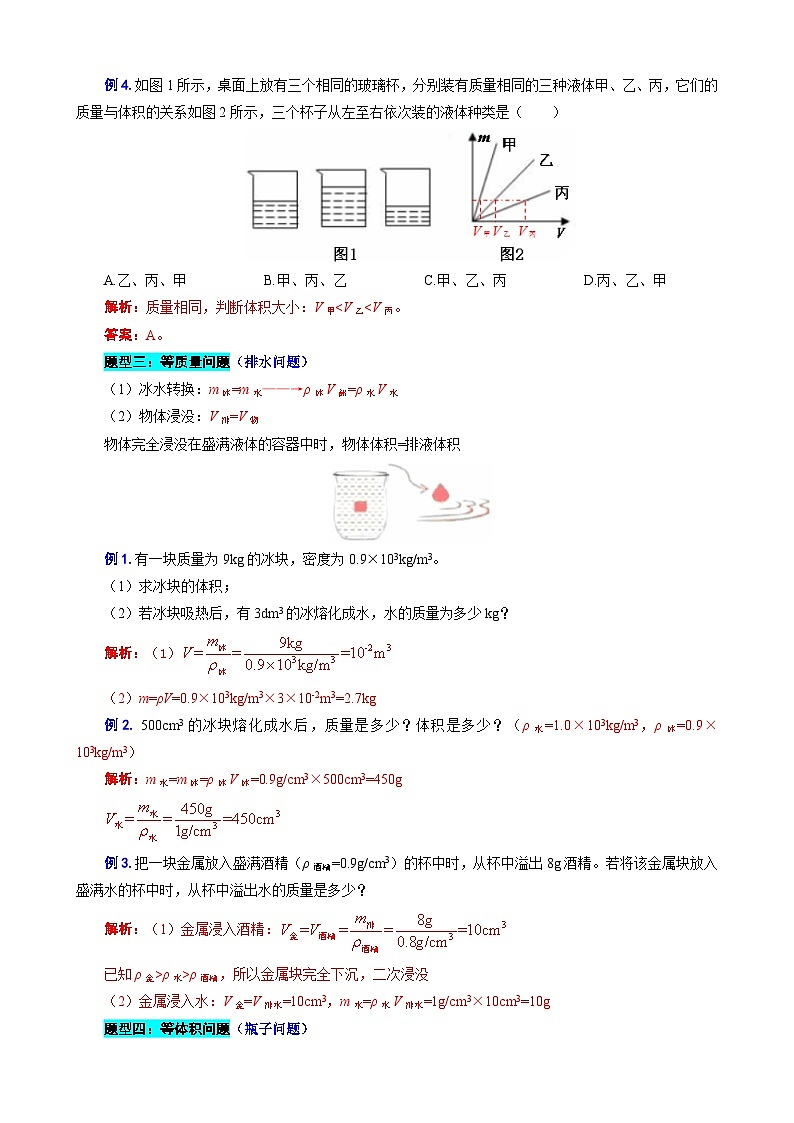 例4.如图1所示，桌面上放有三个相同的玻璃杯，分别装有质量相同的三种液体甲、乙、丙，它们的
质量与体积的关系如图2所示，三个杯子从左至右依次装的液体种类是（　　）
m
甲
乙
丙
V甲 V乙 V丙 V
图1 图2
A.乙、丙、甲 B.甲、丙、乙 C.甲、乙、丙 D.丙、乙、甲
解析：质量相同，判断体积大小：V甲<V乙<V丙。
答案：A。
题型三：等质量问题（排水问题）
（1）冰水转换：m冰=m水———→ρ冰V冰=ρ水V水
（2）物体浸没：V排=V物
物体完全浸没在盛满液体的容器中时，物体体积=排液体积
例1.有一块质量为9kg的冰块，密度为0.9×10³kg/m³。
（1）求冰块的体积；
（2）若冰块吸热后，有3dm³的冰熔化成水，水的质量为多少kg？
解析：（1）V=m冰/ρ冰=9kg/0.9×10³kg/m³=10⁻²m³
（2）m=ρV=0.9×10³kg/m³×3×10⁻²m³=2.7kg
例2. 500cm³的冰块熔化成水后，质量是多少？体积是多少？（ρ水=1.0×10³kg/m³，ρ冰=0.9×
10³kg/m³）
解析：m水=m冰=ρ冰V冰=0.9g/cm³×500cm³=450g
V水=m水/ρ水=450g/1g/cm³=450cm³
例3.把一块金属放入盛满酒精（ρ酒精=0.9g/cm³）的杯中时，从杯中溢出8g酒精。若将该金属块放入
盛满水的杯中时，从杯中溢出水的质量是多少？
解析：（1）金属浸入酒精：V金=V酒精=m排/ρ酒精=8g/0.8g/cm³=10cm³
已知ρ金>ρ水>ρ酒精，所以金属块完全下沉，二次浸没
（2）金属浸入水：V金=V排水=10cm³，m水=ρ水V排水=1g/cm³×10cm³=10g
题型四：等体积问题（瓶子问题）